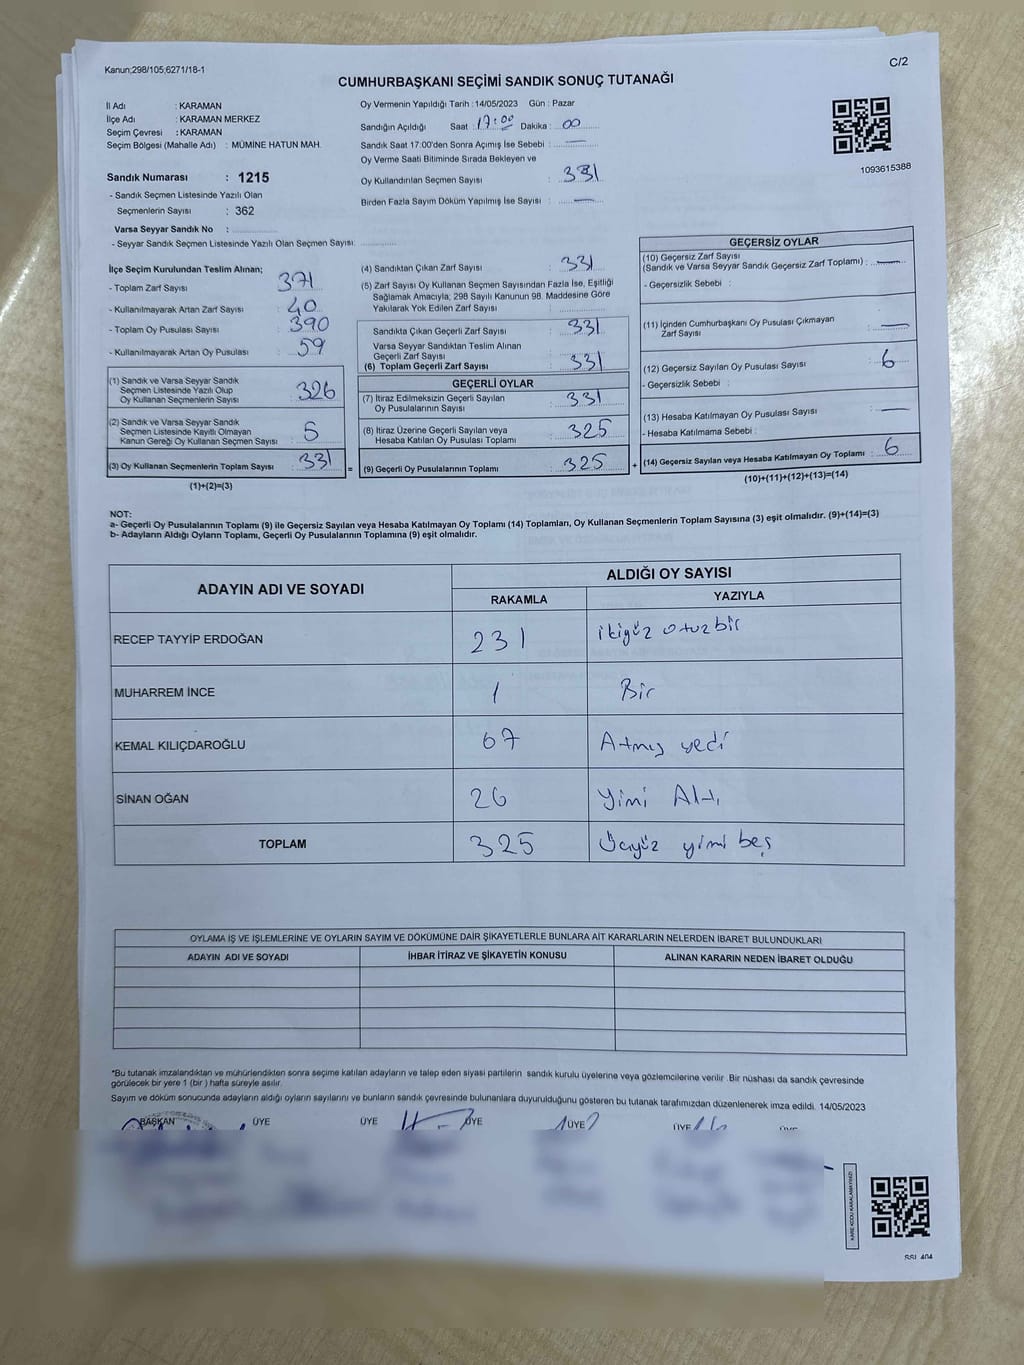 Kanun;298/105;6271/18-1
C/2
CUMHURBAŞKANI SEÇİMİ SANDIK SONUÇ TUTANAĞI
İl Adı : KARAMAN
İlçe Adı : KARAMAN MERKEZ
Seçim Çevresi : KARAMAN
Seçim Bölgesi (Mahalle Adı) : MÜMİNE HATUN MAH.
Sandık Numarası : 1215
- Sandık Seçmen Listesinde Yazılı Olan
Seçmenlerin Sayısı : 362
Varsa Seyyar Sandık No :
- Seyyar Sandık Seçmen Listesinde Yazılı Olan Seçmen Sayısı:
Oy Vermenin Yapıldığı Tarih : 14/05/2023 Gün : Pazar
Sandığın Açıldığı Saat : 17:00 Dakika : 00
Sandık Saat 17:00'den Sonra Açımış İse Sebebi : —
Oy Verme Saati Bitiminde Sırada Bekleyen ve
Oy Kullandırılan Seçmen Sayısı : 331
Birden Fazla Sayım Döküm Yapılmış İse Sayısı : —
1093615388
İlçe Seçim Kurulundan Teslim Alınan;
- Toplam Zarf Sayısı : 371
- Kullanılmayarak Artan Zarf Sayısı : 40
- Toplam Oy Pusulası Sayısı : 390
- Kullanılmayarak Artan Oy Pusulası : 59
(1) Sandık ve Varsa Seyyar Sandık
Seçmen Listesinde Yazılı Olup
Oy Kullanan Seçmenlerin Sayısı : 326
(2) Sandık ve Varsa Seyyar Sandık
Seçmen Listesinde Kayıtlı Olmayan
Kanun Gereği Oy Kullanan Seçmen Sayısı : 5
(3) Oy Kullanan Seçmenlerin Toplam Sayısı : 331 =
(1)+(2)=(3)
(4) Sandıktan Çıkan Zarf Sayısı : 331
(5) Zarf Sayısı Oy Kullanan Seçmen Sayısından Fazla İse, Eşitliği
Sağlamak Amacıyla, 298 Sayılı Kanunun 98. Maddesine Göre
Yakılarak Yok Edilen Zarf Sayısı :
Sandıkta Çıkan Geçerli Zarf Sayısı : 331
Varsa Seyyar Sandıktan Teslim Alınan
Geçerli Zarf Sayısı :
(6) Toplam Geçerli Zarf Sayısı : 331
GEÇERLİ OYLAR
(7) İtiraz Edilmeksizin Geçerli Sayılan
Oy Pusulalarının Sayısı : 331
(8) İtiraz Üzerine Geçerli Sayılan veya
Hesaba Katılan Oy Pusulası Toplamı : 325
(9) Geçerli Oy Pusulalarının Toplamı : 325 +
GEÇERSİZ OYLAR
(10) Geçersiz Zarf Sayısı
(Sandık ve Varsa Seyyar Sandık Geçersiz Zarf Toplamı) : —
- Geçersizlik Sebebi :
(11) İçinden Cumhurbaşkanı Oy Pusulası Çıkmayan
Zarf Sayısı : —
(12) Geçersiz Sayılan Oy Pusulası Sayısı : 6
- Geçersizlik Sebebi :
(13) Hesaba Katılmayan Oy Pusulası Sayısı : —
- Hesaba Katılmama Sebebi :
(14) Geçersiz Sayılan veya Hesaba Katılmayan Oy Toplamı : 6
(10)+(11)+(12)+(13)=(14)
NOT:
a- Geçerli Oy Pusulalarının Toplamı (9) ile Geçersiz Sayılan veya Hesaba Katılmayan Oy Toplamı (14) Toplamları, Oy Kullanan Seçmenlerin Toplam Sayısına (3) eşit olmalıdır. (9)+(14)=(3)
b- Adayların Aldığı Oyların Toplamı, Geçerli Oy Pusulalarının Toplamına (9) eşit olmalıdır.
ADAYIN ADI VE SOYADI
ALDIĞI OY SAYISI
RAKAMLA YAZIYLA
RECEP TAYYİP ERDOĞAN 231 ikiyüz otuzbir
MUHARREM İNCE 1 Bir
KEMAL KILIÇDAROĞLU 67 Atmış yedi
SİNAN OĞAN 26 yimi Altı
TOPLAM 325 Üçyüz yimi beş
OYLAMA İŞ VE İŞLEMLERİNE VE OYLARIN SAYIM VE DÖKÜMÜNE DAİR ŞİKAYETLERLE BUNLARA AİT KARARLARIN NELERDEN İBARET BULUNDUKLARI
ADAYIN ADI VE SOYADI İHBAR İTİRAZ VE ŞİKAYETİN KONUSU ALINAN KARARIN NEDEN İBARET OLDUĞU
*Bu tutanak imzalandıktan ve mühürlendikten sonra seçime katılan adayların ve talep eden siyasi partilerin sandık kurulu üyelerine veya gözlemcilerine verilir .Bir nüshası da sandık çevresinde
görülecek bir yere 1 (bir ) hafta süreyle asılır.
Sayım ve döküm sonucunda adayların aldığı oyların sayılarını ve bunların sandık çevresinde bulunanlara duyurulduğunu gösteren bu tutanak tarafımızdan düzenlenerek imza edildi. 14/05/2023
BAŞKAN ÜYE ÜYE ÜYE ÜYE ÜYE ÜYE
KARE KODU KARALAMAYINIZ!